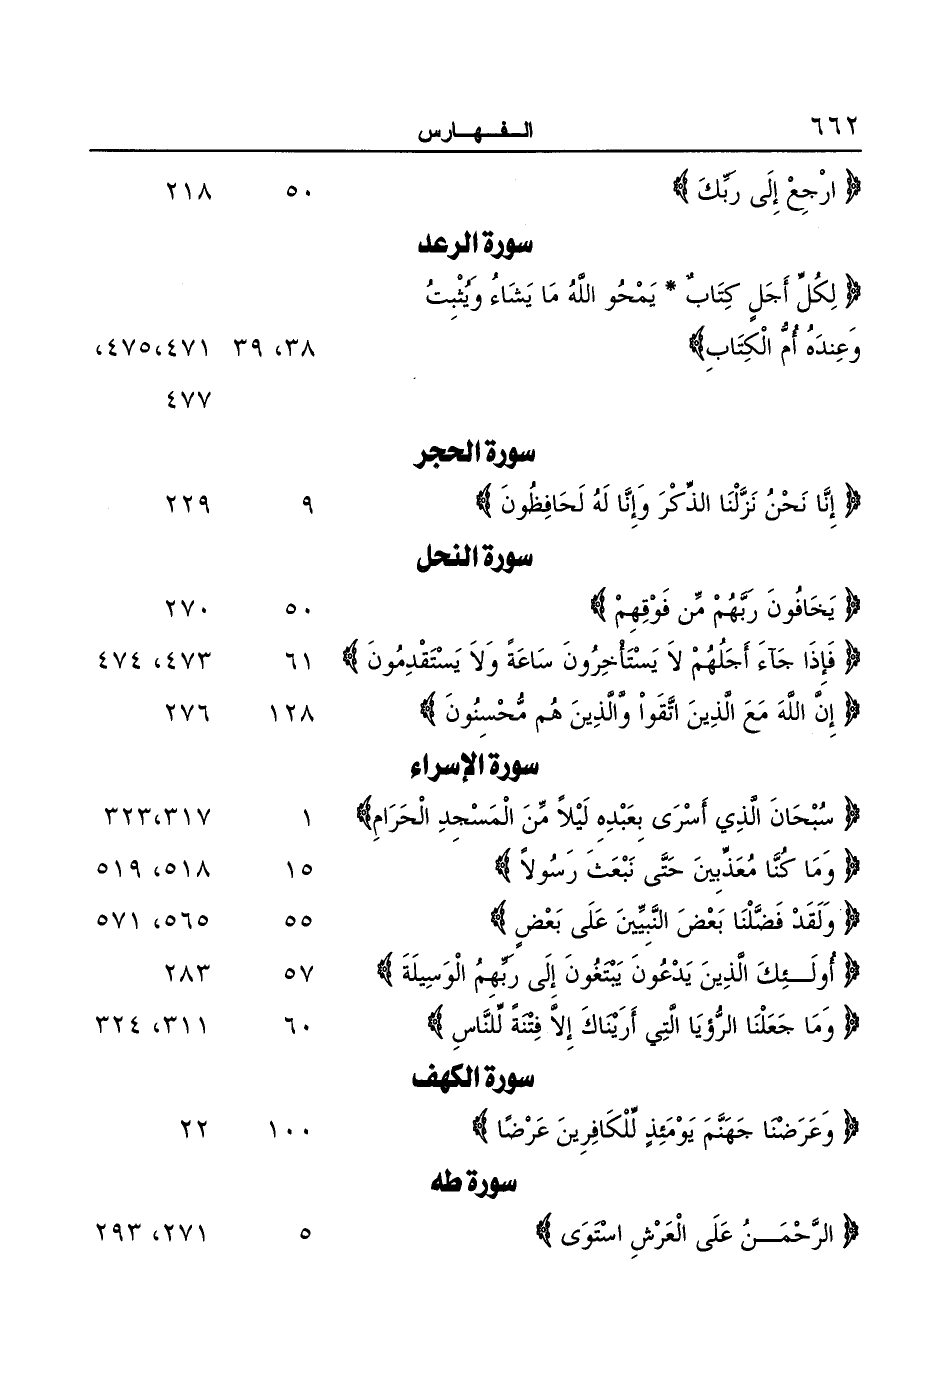 ٦٦٢ الـفـهـارس
﴿ ارْجِعْ إِلَى رَبِّكَ ﴾ ٥٠ ٢١٨
سورة الرعد
﴿ لِكُلِّ أَجَلٍ كِتَابٌ * يَمْحُو اللَّهُ مَا يَشَاءُ وَيُثْبِتُ
وَعِندَهُ أُمُّ الْكِتَابِ﴾ ٣٨، ٣٩ ٤٧١،٤٧٥،
٤٧٧
سورة الحجر
﴿ إِنَّا نَحْنُ نَزَّلْنَا الذِّكْرَ وَإِنَّا لَهُ لَحَافِظُونَ ﴾ ٩ ٢٢٩
سورة النحل
﴿ يَخَافُونَ رَبَّهُمْ مِّن فَوْقِهِمْ ﴾ ٥٠ ٢٧٠
﴿ فَإِذَا جَآءَ أَجَلُهُمْ لاَ يَسْتَأْخِرُونَ سَاعَةً وَلاَ يَسْتَقْدِمُونَ ﴾ ٦١ ٤٧٣، ٤٧٤
﴿ إِنَّ اللَّهَ مَعَ الَّذِينَ اتَّقَواْ وَّالَّذِينَ هُم مُّحْسِنُونَ ﴾ ١٢٨ ٢٧٦
سورة الإسراء
﴿ سُبْحَانَ الَّذِي أَسْرَى بِعَبْدِهِ لَيْلاً مِّنَ الْمَسْجِدِ الْحَرَامِ﴾ ١ ٣١٧،٣٢٣
﴿ وَمَا كُنَّا مُعَذِّبِينَ حَتَّى نَبْعَثَ رَسُولاً ﴾ ١٥ ٥١٨، ٥١٩
﴿ وَلَقَدْ فَضَّلْنَا بَعْضَ النَّبِيِّينَ عَلَى بَعْضٍ ﴾ ٥٥ ٥٦٥، ٥٧١
﴿ أُولَـــئِكَ الَّذِينَ يَدْعُونَ يَبْتَغُونَ إِلَى رَبِّهِمُ الْوَسِيلَةَ ﴾ ٥٧ ٢٨٣
﴿ وَمَا جَعَلْنَا الرُّؤيَا الَّتِي أَرَيْنَاكَ إِلاَّ فِتْنَةً لِّلنَّاسِ ﴾ ٦٠ ٣١١، ٣٢٤
سورة الكهف
﴿ وَعَرَضْنَا جَهَنَّمَ يَوْمَئِذٍ لِّلْكَافِرِينَ عَرْضًا ﴾ ١٠٠ ٢٢
سورة طه
﴿ الرَّحْمَـــنُ عَلَى الْعَرْشِ اسْتَوَى ﴾ ٥ ٢٧١، ٢٩٣